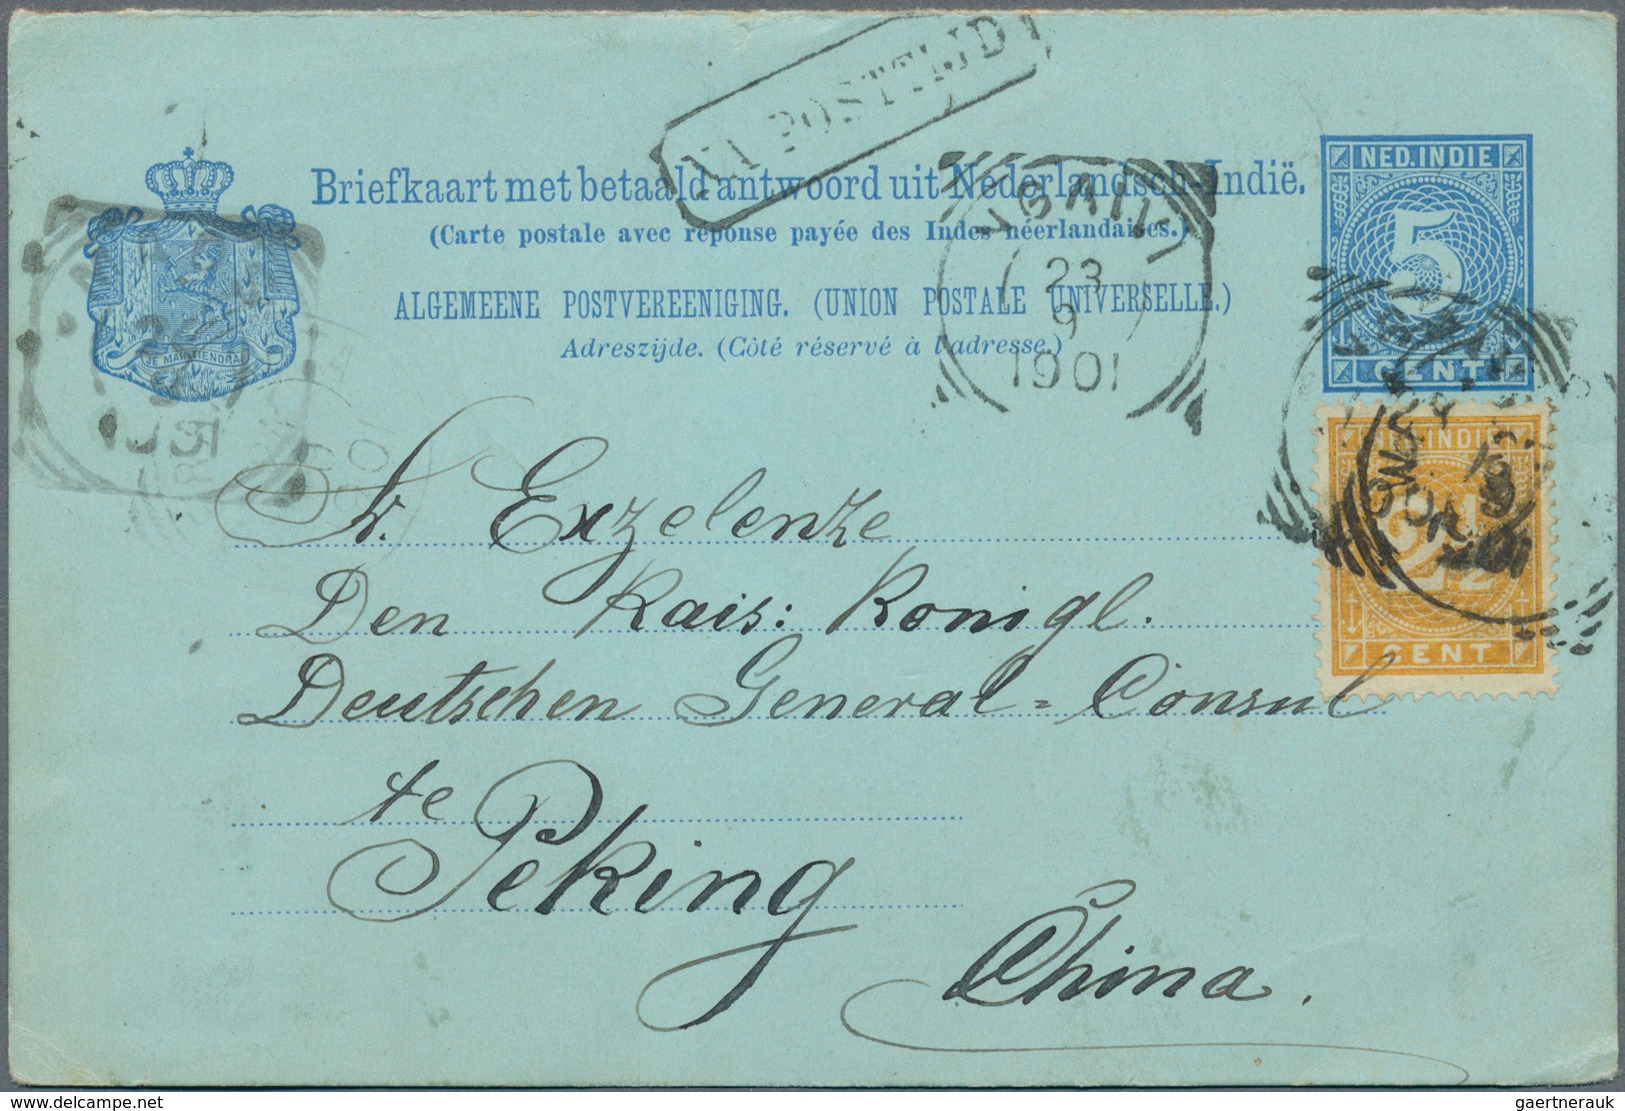 NA POSTTIJD
Briefkaart met betaald antwoord uit Nederlandsch-Indië.
(Carte postale avec réponse payée des Indes néerlandaises.)
ALGEMEENE POSTVEREENIGING. (UNION POSTALE UNIVERSELLE.)
Adreszijde. (Côté réservé à l'adresse.)
JE MAINTIENDRAI
NED. INDIE
5
CENT
23
9
1901
NED. INDIE
2½
CENT
Sr. Exzelenze
Den Kais: Konigl.
Deutschen General-Consul
te
Peking
China.
www.delcampe.net
gaertnerauk